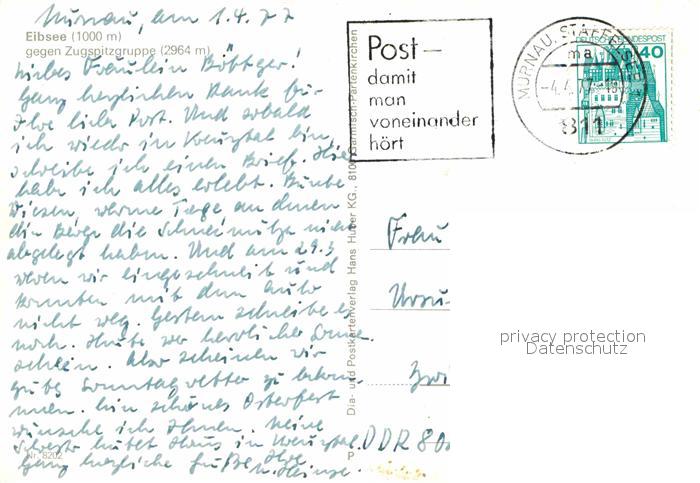 Murnau, am 1.4.77
Eibsee (1000 m)
gegen Zugspitzgruppe (2964 m)
Liebes Fräulein Böttger!
Ganz herzlichen Dank für
Ihre liebe Post. Und sobald
ich wieder in Kreuztal bin,
schreibe ich einen Brief. Hier
habe ich alles erlebt. Bunte
Wiesen, warme Tage an denen
die Berge die Schneemütze nicht
abgelegt haben. Und am 29.3
waren wir eingeschneit und
konnten mit dem Auto
nicht weg. Gestern schneite es
noch. Heute war herrlicher Sonnen
schein. Also scheinen wir
gutes Sonntagswetter zu bekom
men. Ein schönes Osterfest
wünsche ich Ihnen. Meine
hütet Haus in Kreuztal.
Nr. 8202
Ganz herzliche Grüße Ihre
Dia- und Postkartenverlag Hans Huber KG., 8100 Garmisch-Partenkirchen
P
Post –
damit
man
voneinander
hört
MURNAU, STAFFELSEE
ma
–4.4.77
811
DEUTSCHE BUNDESPOST
40
Frau
Ursu
Zwi
DDR 80
privacy protection
Datenschutz